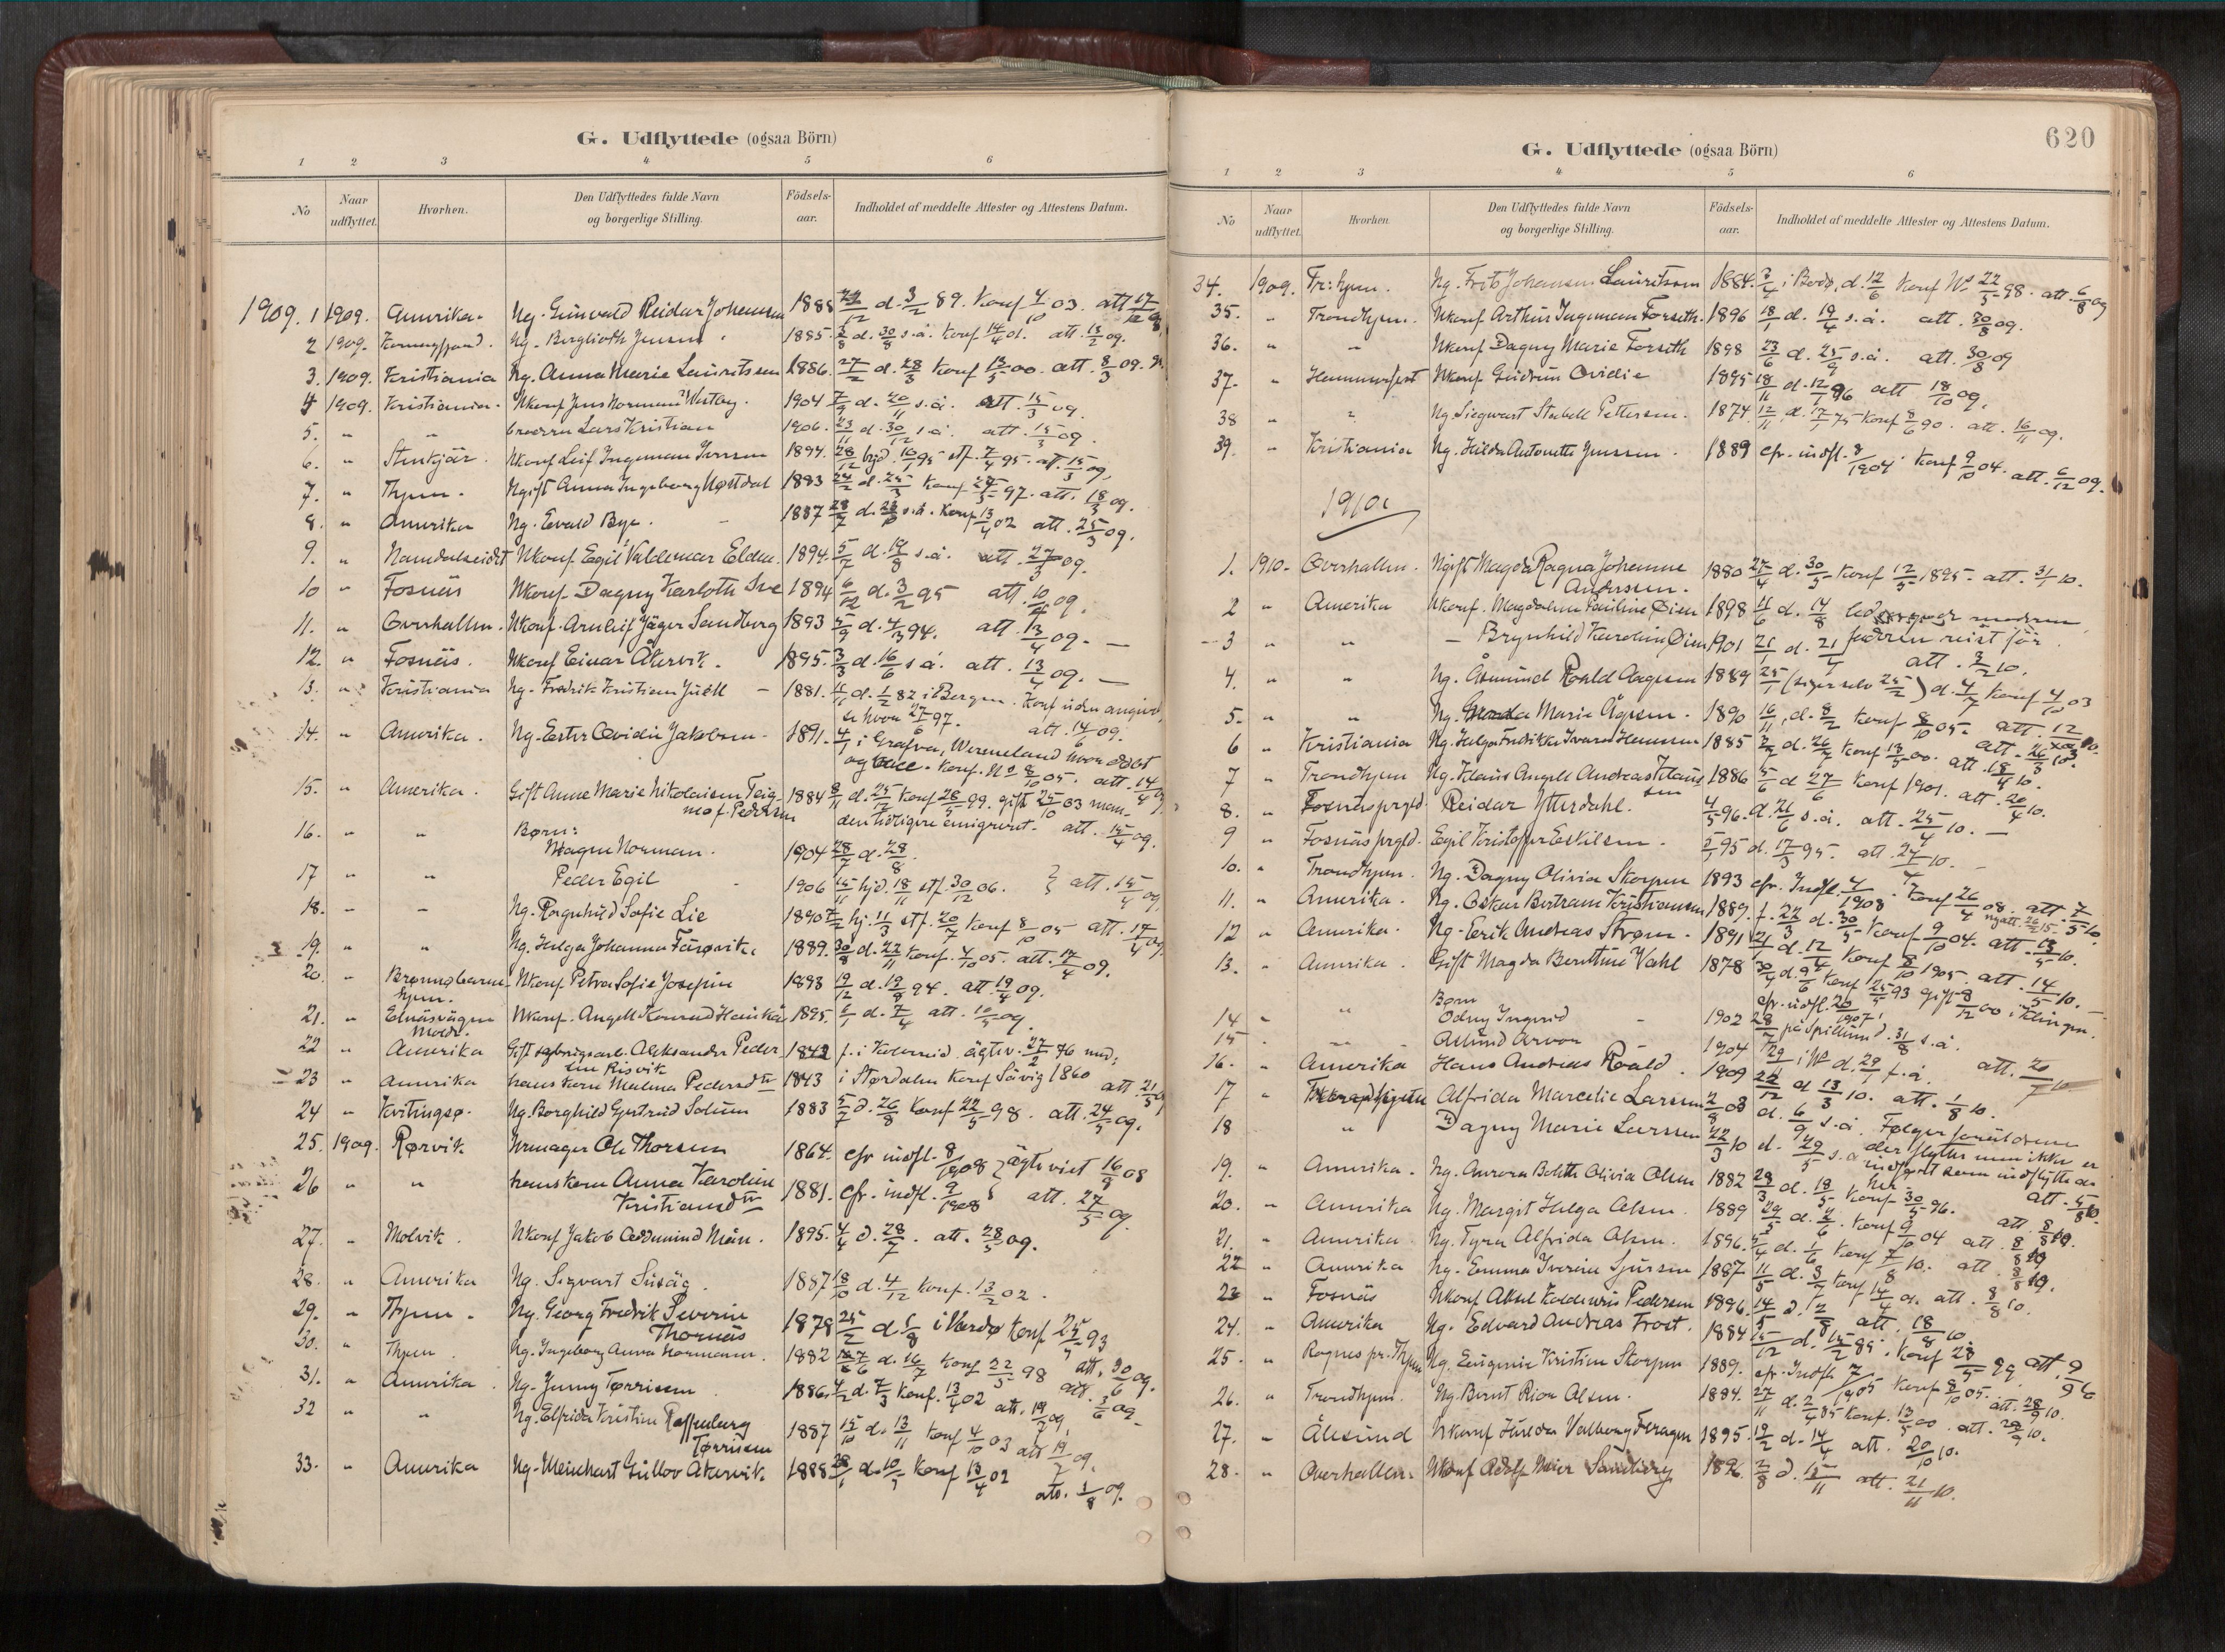 G. Udflyttede (ogsaa Börn)
1 2 3 4 5 6
No Naar udflyttet. Hvorhen. Den Udflyttedes fulde Navn og borgerlige Stilling. Födsels-aar. Indholdet af meddelte Attester og Attestens Datum.
1909. 1 1909. Amerika. Ug. Reidar Johansen 1888 d. 3/2 89. Konf 4/10 03. att 17/12
2 1909. Ug. Berglioth Jensen 1885. d. 30/8 s.å. Konf 14/4 01. att. 13/2 09.
3. 1909. Kristiania Ug. Anna Marie Lauritssen 1886. 27/2 d. 28/3 Konf 13/5 00. att. 8/3 09.
4 1909. Kristiania. Ukonf Jens Norman Westby. 1904 7/9 d. 20/11 s.å. Att. 15/3 09.
5. " " broderen Lars Kristian 1906. 23/11 d. 30/12 s.å. att. 15/3 09.
6. " Stenkjær. Ukonf Leif Ingeman Iversen 1894. 28/12 hjd. 16/1 95 stf. 7/4 95. at. 15/3 09.
7. " Thjem. Ugift Anna Ingeborg Møstdal 1883 24/2 d. 25/3 Konf 28/5 97. att. 18/3 09.
8. " Amerika Ug. Evald Bye. 1887 28/7 d. 28/8 s.å. Konf 13/4 02 att. 25/3 09.
9. " Namdalseidet Ukonf. Egil Valdemar Elden. 1894. 5/7 d. 19/8 s.å. att. 27/3 09.
10 " Fosnäs Ukonf. Dagny Karloth Sve 1894 6/12 d. 3/2 95 att. 10/4 09.
11. " Overhallen. Ukonf. Arnleif Jäger Sandberg 1893 5/9 d. 4/3 94. att. 13/4 09. —
12. " Fosnäs. Ukonf Einar Åkervik. 1895. 3/3 d. 16/6 s.å. att. 13/4 09. —
13. " Kristiania Ug. Fredrik Kristian Juell 1881. d. 1/2 82 i Bergen. Konf uden angivel
se hvor 27/6 97. att. 14/6 09.
14. " Amerika. Ug. Ester Ovidie Jakobsen. 1891. 4/1 i Grafva, Wermeland hvor döbt
og vacc. Konf. Ns 8/10 05. att. 14/4
15. " Amerika. Gift Anne Marie Nikolaisen Teig- 1884 8/11 d. 25/12 Konf 28/5 99. gift 25/10 03 man-
mo f. Pedersen den tidligere emigreret. att. 15/4 09.
16. " " Børn:
Magne Norman. 1904 28/7 d. 28/8.
17 " " Peder Egil 1906 15/11 hjd. 18/11 stf. 30/12 06. } att. 15/4 09.
18. " " Ug. Ragnhild Sofie Lie 1890 7/2 hj. 11/3 stf. 20/7 Konf 8/10 05 att. 17/4 09.
19. " " Ug. Helga Johanna Färøvik. 1889. 30/8 d. 22/11 Konf. 4/10 05. att. 17/4 09.
20. " Ukonf Petra Sofie Josefine 1893 19/12 d. 19/8 94. att. 19/4 09.
21. " Elnäsvågen Ukonf. Angell Konrad 1895. 6/1 d. 7/4 att. 10/5 09
Molde.
22 " Amerika Gift Aleksander Peder- 1842 f. i Kolvereid. ägtev. 27/2 76 med;
sen Risvik
23 " Amerika hans kone Malena Pedersd 1843 i Størdalen Konf Sävig 1860 att. 21/5
24 " Kvitingsø. Ug. Borghild Gjertrud Solum 1883 5/7 d. 26/8 Konf 22/5 98. att. 24/5 09.
25. 1909. Rørvik Urmager Ole Thorsen 1864. cfr indfl. 8/1908 } ägteviet 16/8 08
26 " " hans kone Anna Karoline 1881. cfr. indfl. 9/1908 att. 27/5 09.
Kristiansd
27. " Malvik. Ukonf Jakob Oddmund Moen. 1895. 4/4 d. 28/7. att. 28/5 09.
28. " Amerika Ug. Sigvart Susåg. 1887 18/10 d. 4/12 Konf. 13/2 02.
29. " Thjem. Ug. Georg Fredrik Severin 1878 25/2 d. 5/8 i Vardø Konf 25/5 93
Thornäs att. 30/6 09.
30. " Thjem. Ug. Ingeborg Anna Normann. 1882 d. 16/7 Konf 22/5 98 att. 3/6 09.
31. " Amerika. Ug. Jenny Tørrissen 1886. 4/2 d. 7/3 Konf. 13/4 02 att. 19/7 09
32 " " Ug. Elfrida Kristine 1887 15/10 d. 13/11 Konf 4/10 03 att 19/7 09.
Tørrissen
33. " Amerika Ug. Meinhart Gullov Åkervik. 1888. 28/1 d. 10/5 Konf 13/4 02
att. 3/8 09.
620
G. Udflyttede (ogsaa Börn)
1 2 3 4 5 6
No Naar udflyttet. Hvorhen Den Udflyttedes fulde Navn og borgerlige Stilling. Födsels-aar. Indholdet af meddelte Attester og Attestens Datum.
34. 1909. Tr:hjem. Ug. Fritz Johansen Lauritssen 1884. i Bodø, d. 12/6 Konf Ns 22/5 98. att. 6/8 09
35. " Trondhjem. Ukonf Arthur Ingeman Forseth. 1896 18/1 d. 19/4 s.å. att. 30/8 09.
36. " " Ukonf Dagny Marie Forseth 1898 23/6 d. 25/9 s.å. att. 30/8 09
37. " Hammerfest Ukonf Gudrun Ovidie 1895 18/11 d. 12/1 96 att 18/10 09.
38 " " Ug. Siegwart Stabell Pettersen. 1874 12/11 d. 17/1 75 Konf 8/6 90. att. 16/11 09.
39. " Kristiania Ug. Hilda Antonette Jenssen. 1889 cfr. indfl. 8/1904. Konf 9/10 04. att. 6/12 09.
1910.
1. 1910. Overhallen. Ugift Magda Ragna Johanne 1880 27/4 d. 30/5 Konf 12/5 1895. att. 3/1 10.
Anderssen.
2 " Amerika Ukonf. Magdalena Pauline Øien 1898 11/6 d. 14/8 ledsager modren
3 " " — Brynhild Karoline Øien 1901 21/1 d. 21/4 fadren reist før.
att. 3/2 10.
4. " " Ug. Åsmund Roald Aagesen 1889 25/1 (siger selv 25/2) d. 4/7 Konf 4/10 03
5. " " Ug. Marie Ågesen. 1890 16/11, d. 8/2 Konf 8/10 05. att. 12/
6 " Kristiania Ug. Helga Fredrikke Ivara Hanssen 1885 d. 26/7 Konf 13/5 00. att. 16/3 10.
7 " Trondhjem Ug. Klaus Angell Andreas Klaus 1886 5/6 d 27/6 Konf 1901. att. 18/4 10.
sen
8. " Fosnäs prgld. Reidar Ytterdahl. 4/5 96. d. 21/6 s.å. att. 25/4 10. —
9 " Fosnäs prgld. Egil Kristoffer Eskilsen. 95 d. 17/3 95. att. 27/4 10. —
10. " Trondhjem. Ug. Dagny Olivia Skorpen 1893 cfr. Indfl. 4/1908. Konf 26/4 08. att. 7/5 10.
11. " Amerika. Ug. Oskar Bertram Kristiansen 1889. f. 22/3 d. 30/5 Konf 9/10 04. att. 13/5 10.
12 " Amerika. Ug. Erik Andreas Strøm. 1891 21/1 d. 12/4 Konf 8/10 1905. att. 14/5 10. —
13. " Amerika. Gift Magda Berntine Vahl 1878 30/4 d. 9/6 Konf 25/5 93 gift 8/12 00 i Klingen.
cfr. indfl. 20/1907.
14 " " Børn
Odny Ingerid 1902 28/7 på Spillum d. 31/8 s.å.
15. " " Asmund Arvon 1904 i Ns d. 29/ s.å. att. 20/7 10
16. " Amerika Hans Andreas Roald. 1909 22/12 d 13/3 10. att. 1/8 10.
17 " Alfrida Marcelie Larssen 2/8 08 d. 6/9 s.å. Følger forældrene
18 " " Dagny Marie Larssen 22/3 10 d. 29/5 s.å der flytter men ikke er
indført som indflyttede
her. att. 5/8 10.
19. " Amerika. Ug. Aurora Bolette Olivia Olsen 1882 28/3 d. 18/5 Konf 30/5 96.
20. " Amerika Ug. Margit Helga Olsen. 1889 29/5 d. 4/6. Konf 9/10 04 att. 8/8 10.
21. " Amerika Ug. Tyra Alfrida Olsen. 1896. 5/4 d. 1/6 Konf 7/8 10. att 8/8 10.
22 " Amerika Ug. Emma Iverine Sjursen 1887 11/5 d. 3/7 Konf 14/4 01. att. 8/8 10.
23 " Fosnäs Ukonf Aksel Koldevin Pedersen 1896. 14/5 d. 12/8 att. 18/8 10.
24. " Amerika Ug. Edvard Andreas Frost. 1884 15/12 d. 15/2 85. Konf 28/5 99. att. 9/9
25. " Rognes pr. Thjem Ug. Eugenie Kristine Skorpen 1889. cfr. Indfl. 7/1905 Konf 8/10 05. att. 28/9 10.
26. " Trondhjem. Ug. Bernt Rion Olsen. 1884. 27/11 d. 2/4 85 Konf. 13/5 00. att. 28/9 10.
27. " Ålesund Ukonf Hulda Valborg Feragen 1895. 19/2 d. 14/4 att. 20/10 10.
28. " Overhallen. Ukonf Adolf Meier Sandberg 1896. 2/8 d. 15/11 att. 21/11 10.